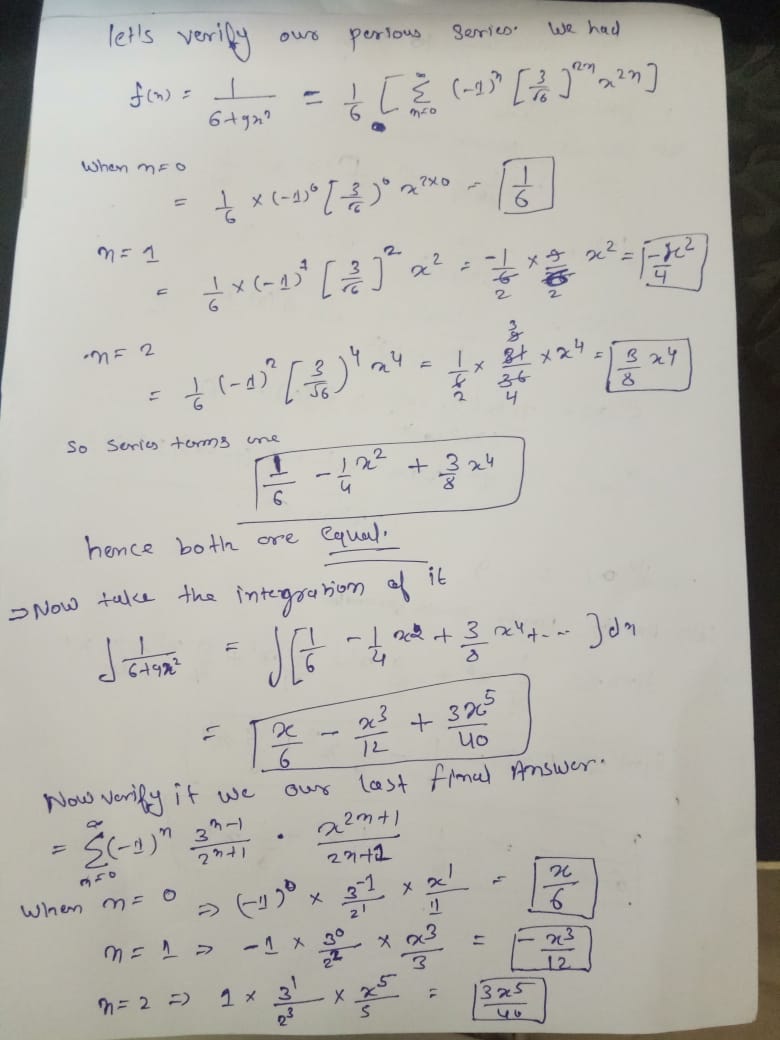 let's verify our perious series. We had
f(n) = 1/(6+9x²) = 1/6 [ Σ_{n=0}^{∞} (-1)ⁿ [3/√6]²ⁿ x²ⁿ ]
When n=0
= 1/6 × (-1)⁰ [3/√6)⁰ x^{2×0} = 1/6
n = 1
= 1/6 × (-1)¹ [3/√6]² x² = -1/6 × x² = -x²/4
n = 2
= 1/6 (-1)² [3/√6)⁴ x⁴ = 1/6 × 81/36 × x⁴ = 3/8 x⁴
So series terms are
1/6 - 1/4 x² + 3/8 x⁴
hence both are equal.
⇒ Now take the integration of it
∫ 1/(6+9x²) = ∫[1/6 - 1/4 x2 + 3/8 x⁴ + ... ] dn
= x/6 - x³/12 + 3x⁵/40
Now verify it we our last final Answer.
= Σ_{n=0}^{∞} (-1)ⁿ 3^{n-1}/2^{n+1} · x^{2n+1}/(2n+1)
When n = 0 ⇒ (-1)⁰ × 3⁻¹/2¹ × x¹/1 = x/6
n = 1 ⇒ -1 × 3⁰/2² × x³/3 = -x³/12
n = 2 ⇒ 1 × 3¹/2³ × x⁵/5 = 3x5/40